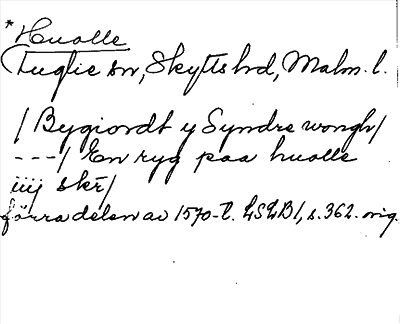 *Hualle
Fuglie sn, Skytts hd, Malm. l.
/ Bygiordt y Syndre wongh/
---/ En ryg paa hualle
iiij skr/
förra delen av 1570-t. LSLB1, s. 362. orig.